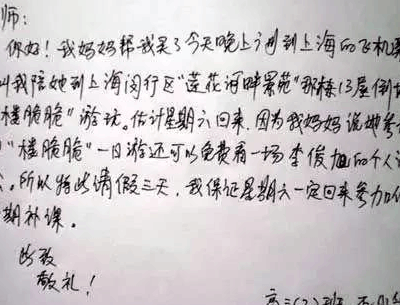 师：
你好！我妈妈帮我买了今天晚上到上海的飞机票
叫我陪她到上海闵行区“莲花河畔景苑”那栋13层倒塌
楼脆脆”游玩。估计星期六回来，因为我妈妈说她参
“楼脆脆”一日游还可以免费看一场李俊旭的个人
。所以特此请假三天，我保证星期六一定回来参加
期补课。
此致
敬礼！
高三(2)班